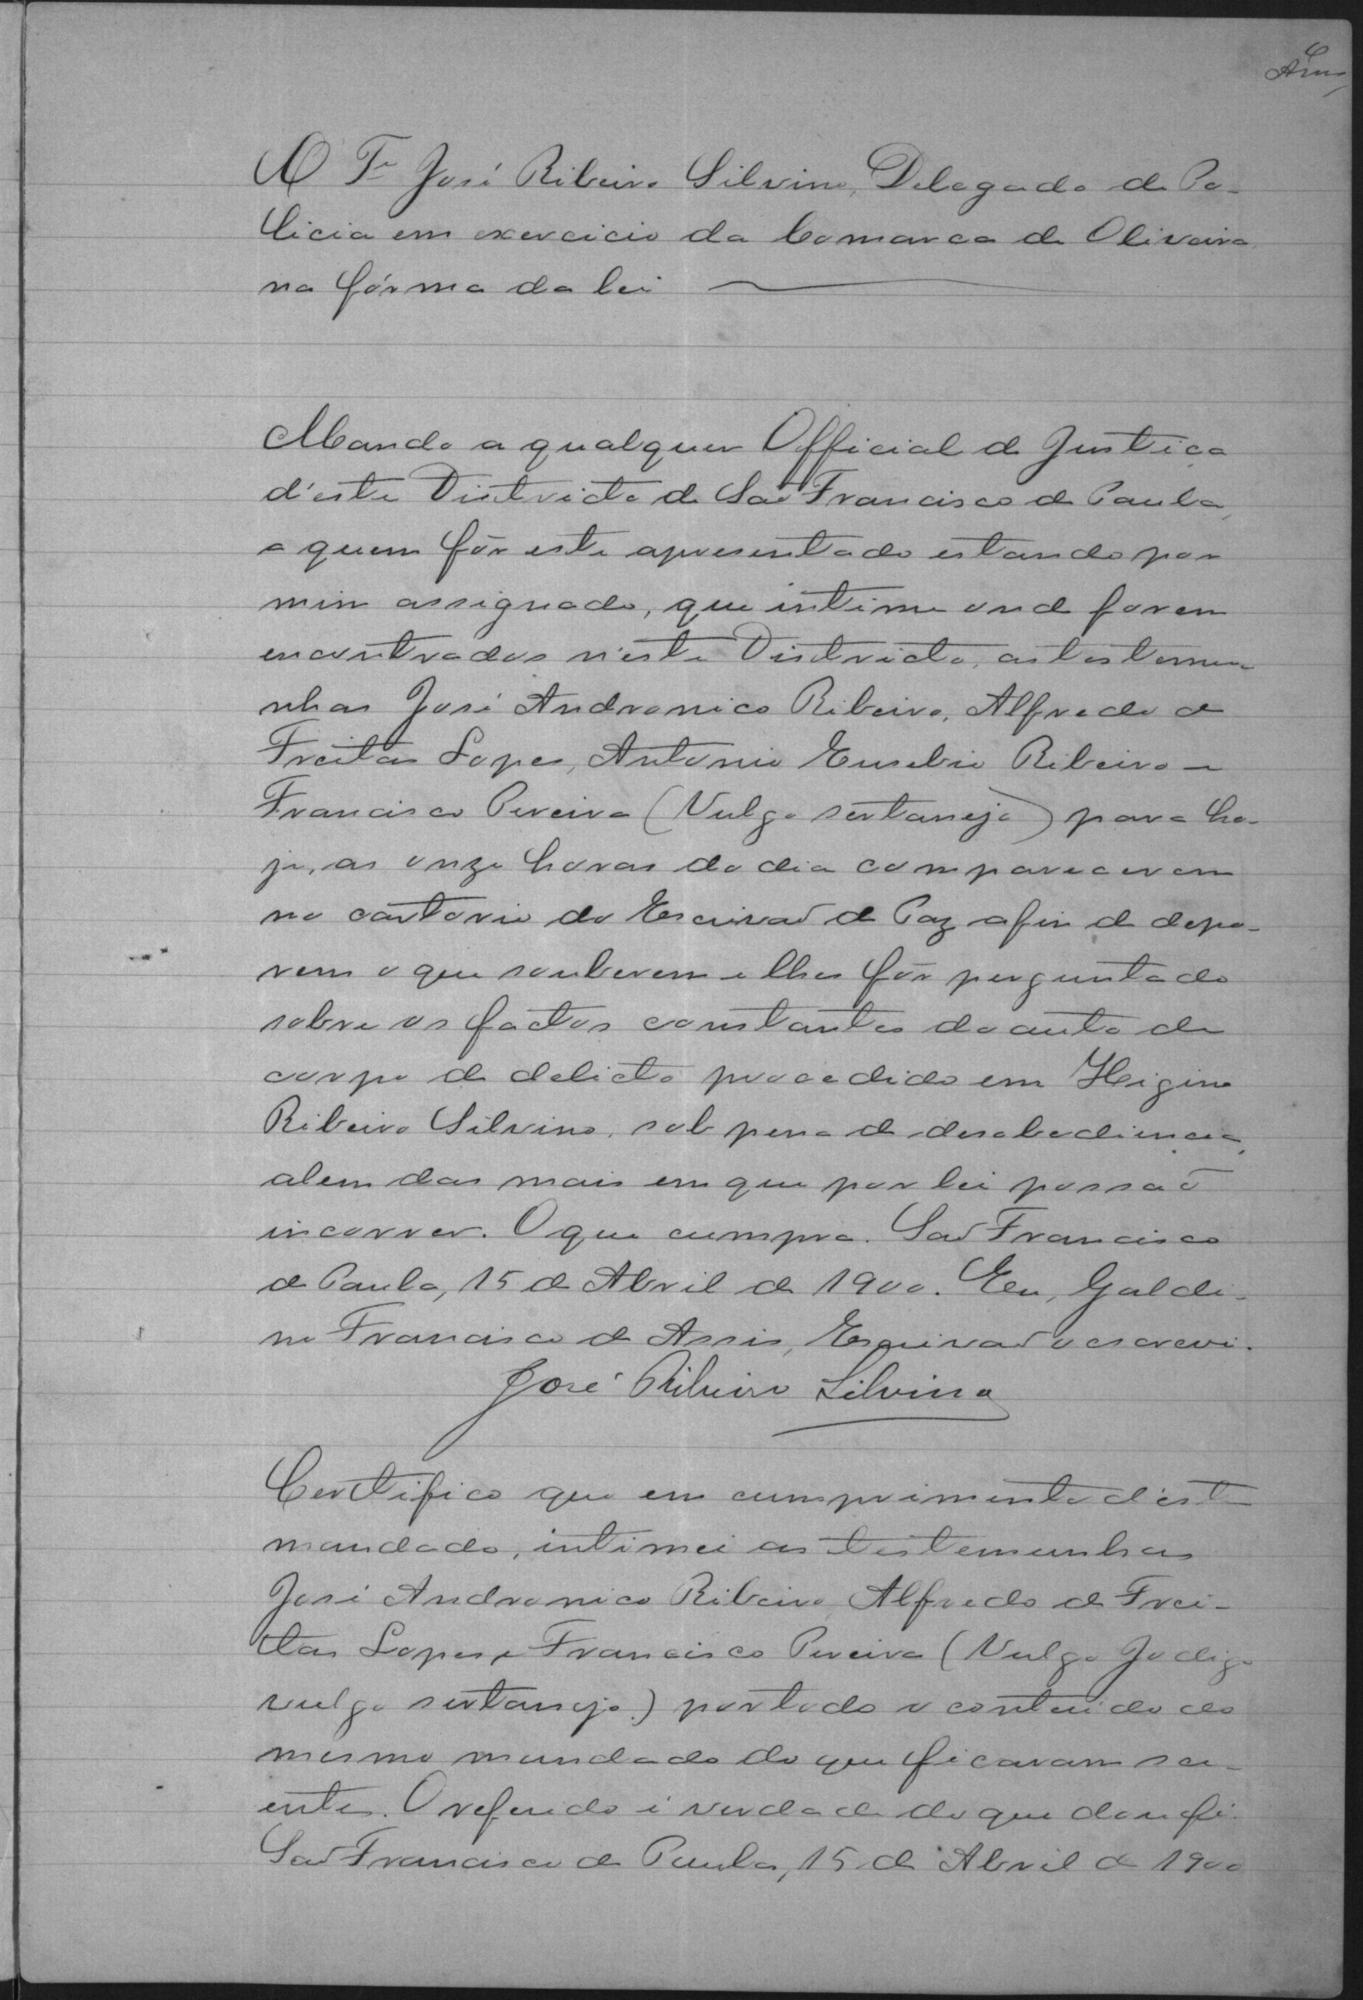 O Te José Ribeiro Silvino, Delegado de Po-
licia em exercicio da Comarca de Oliveira
na fórma da lei
Mando a qualquer Official de Justiça
d'este Districto de São Francisco de Paula,
a quem fôr este apresentado estando por
mim assignado, que intime onde forem
encontrados n'este Districto, as testemu-
nhas José Andronico Ribeiro, Alfredo de
Freitas Lopes, Antonio Eusebio Ribeiro e
Francisco Pereira (Vulgo sertanejo) para ho-
je, as onze horas do dia comparecerem
no cartorio do Escrivão de Paz afim de depo-
rem o que souberem e lhes fôr perguntado
sobre os factos constantes do auto de
corpo de delicto procedido em Higino
Ribeiro Silvino, sob pena de desobediencia,
alem das mais em que por lei possaõ
incorrer. O que cumpra. São Francisco
de Paula, 15 de Abril de 1900. Eu, Galdi-
no Francisco de Assis, Escrivão o escrevi.
José Ribeiro Silvino
Certifico que em cumprimento d'este
mandado, intimei as testemunhas
José Andronico Ribeiro, Alfredo de Frei-
tas Lopes e Francisco Pereira (Vulgo
vulgo sertanejo) por todo o conteúdo do
mesmo mandado do que ficaram sci-
entes. O referido é verdade do que dou fé.
São Francisco de Paula, 15 de Abril de 1900